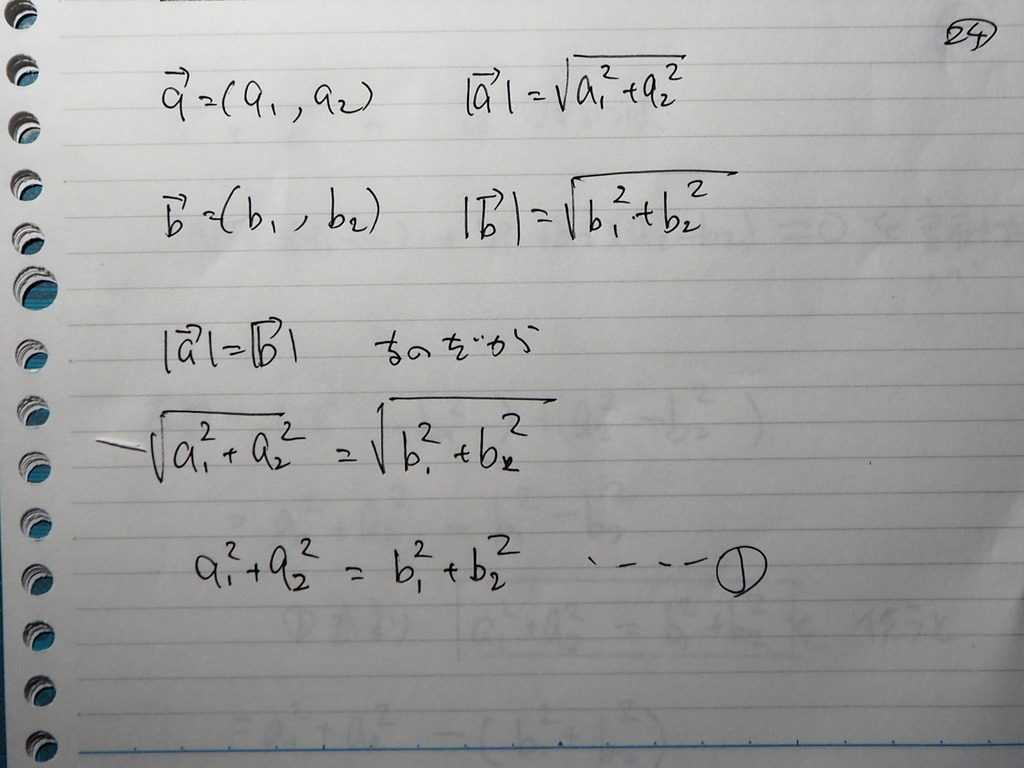 24
a⃗ = (a₁, a₂) |a⃗| = √(a₁² + a₂²)
b⃗ = (b₁, b₂) |b⃗| = √(b₁² + b₂²)
|a⃗| = |b⃗| なのだから
√(a₁² + a₂²) = √(b₁² + b₂²)
a₁² + a₂² = b₁² + b₂² ----①